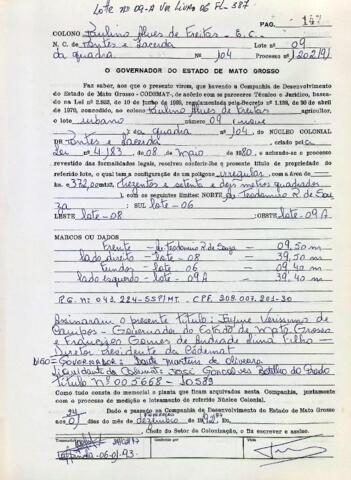 Lote nº 09-A VER Livro 06 FL-387
PAG. 147
COLONO Paulino Alves de Freitas - E.C.
N. C. de Pontes e Lacerda Lote nº 09
da quadra Nº 104 Processo nº 202191
O GOVERNADOR DO ESTADO DE MATO GROSSO
Faz saber, aos que o presente título, virem, que havendo a Companhia de Desenvolvimento
do Estado de Mato Grosso - CODEMAT, de acôrdo com os pareceres Técnico e Jurídico, basea-
do na Lei nº 2.953, de 10 de junho de 1969, regulamentada pelo Decreto nº 1.138, de 30 de abril
de 1970, concedido, ao colono Paulino Alves de Freitas agricultor,
o lote urbano número 09
da quadra nº 104, DO NÚCLEO COLONIAL
DE Pontes e Lacerda criado pela
Lei nº 4.183 de 08 de Maio de 1980, e achando-se o processo
revestido das formalidades legais, resolveu conferir-lhe o presente título de propriedade do
referido lote, o qual tem a configuração de um polígono irregular com a área
de 372,00 m2 trezentos e setenta e dois metros quadrados
), com os seguintes limites: NORTE de Teodomiro R. de Sou
za SUL lote-06
LESTE lote-08 OESTE lote-09A
MARCOS OU DADOS
Frente - de Teodomiro R. de Souza - 09,50 m
lado direito - lote-08 - 39,50 m
Fundos - lote-06 - 09,40 m
lado esquerdo - lote-09A - 39,40 m
R.G. nº 042.224-SSP/MT. CPF 208.007.201-30
Assinaram o presente título: Jayme Veríssimo de
Campos - Governador do Estado de Mato Grosso
e Francisco Gomes de Andrade Lima Filho -
Diretor Presidente da Codemat
DIGO = GOVERNADOR: Dante Martins de Oliveira
Liquidante da Codemat: José Gonçalves Botelho do Prado
título nº 005668 - 10589
Como tudo consta do memorial e planta que ficam arquivados nesta Companhia, juntamente
com o processo de medição e loteamento do referido Núcleo Colonial.
Dado e passado na Companhia de Desenvolvimento do Estado de Mato Grosso
aos 07 dias do mês de dezembro de 1992. Eu
, Chefe do Setor de Colonização, o fiz escrever e assino.
06-01-93
Visto